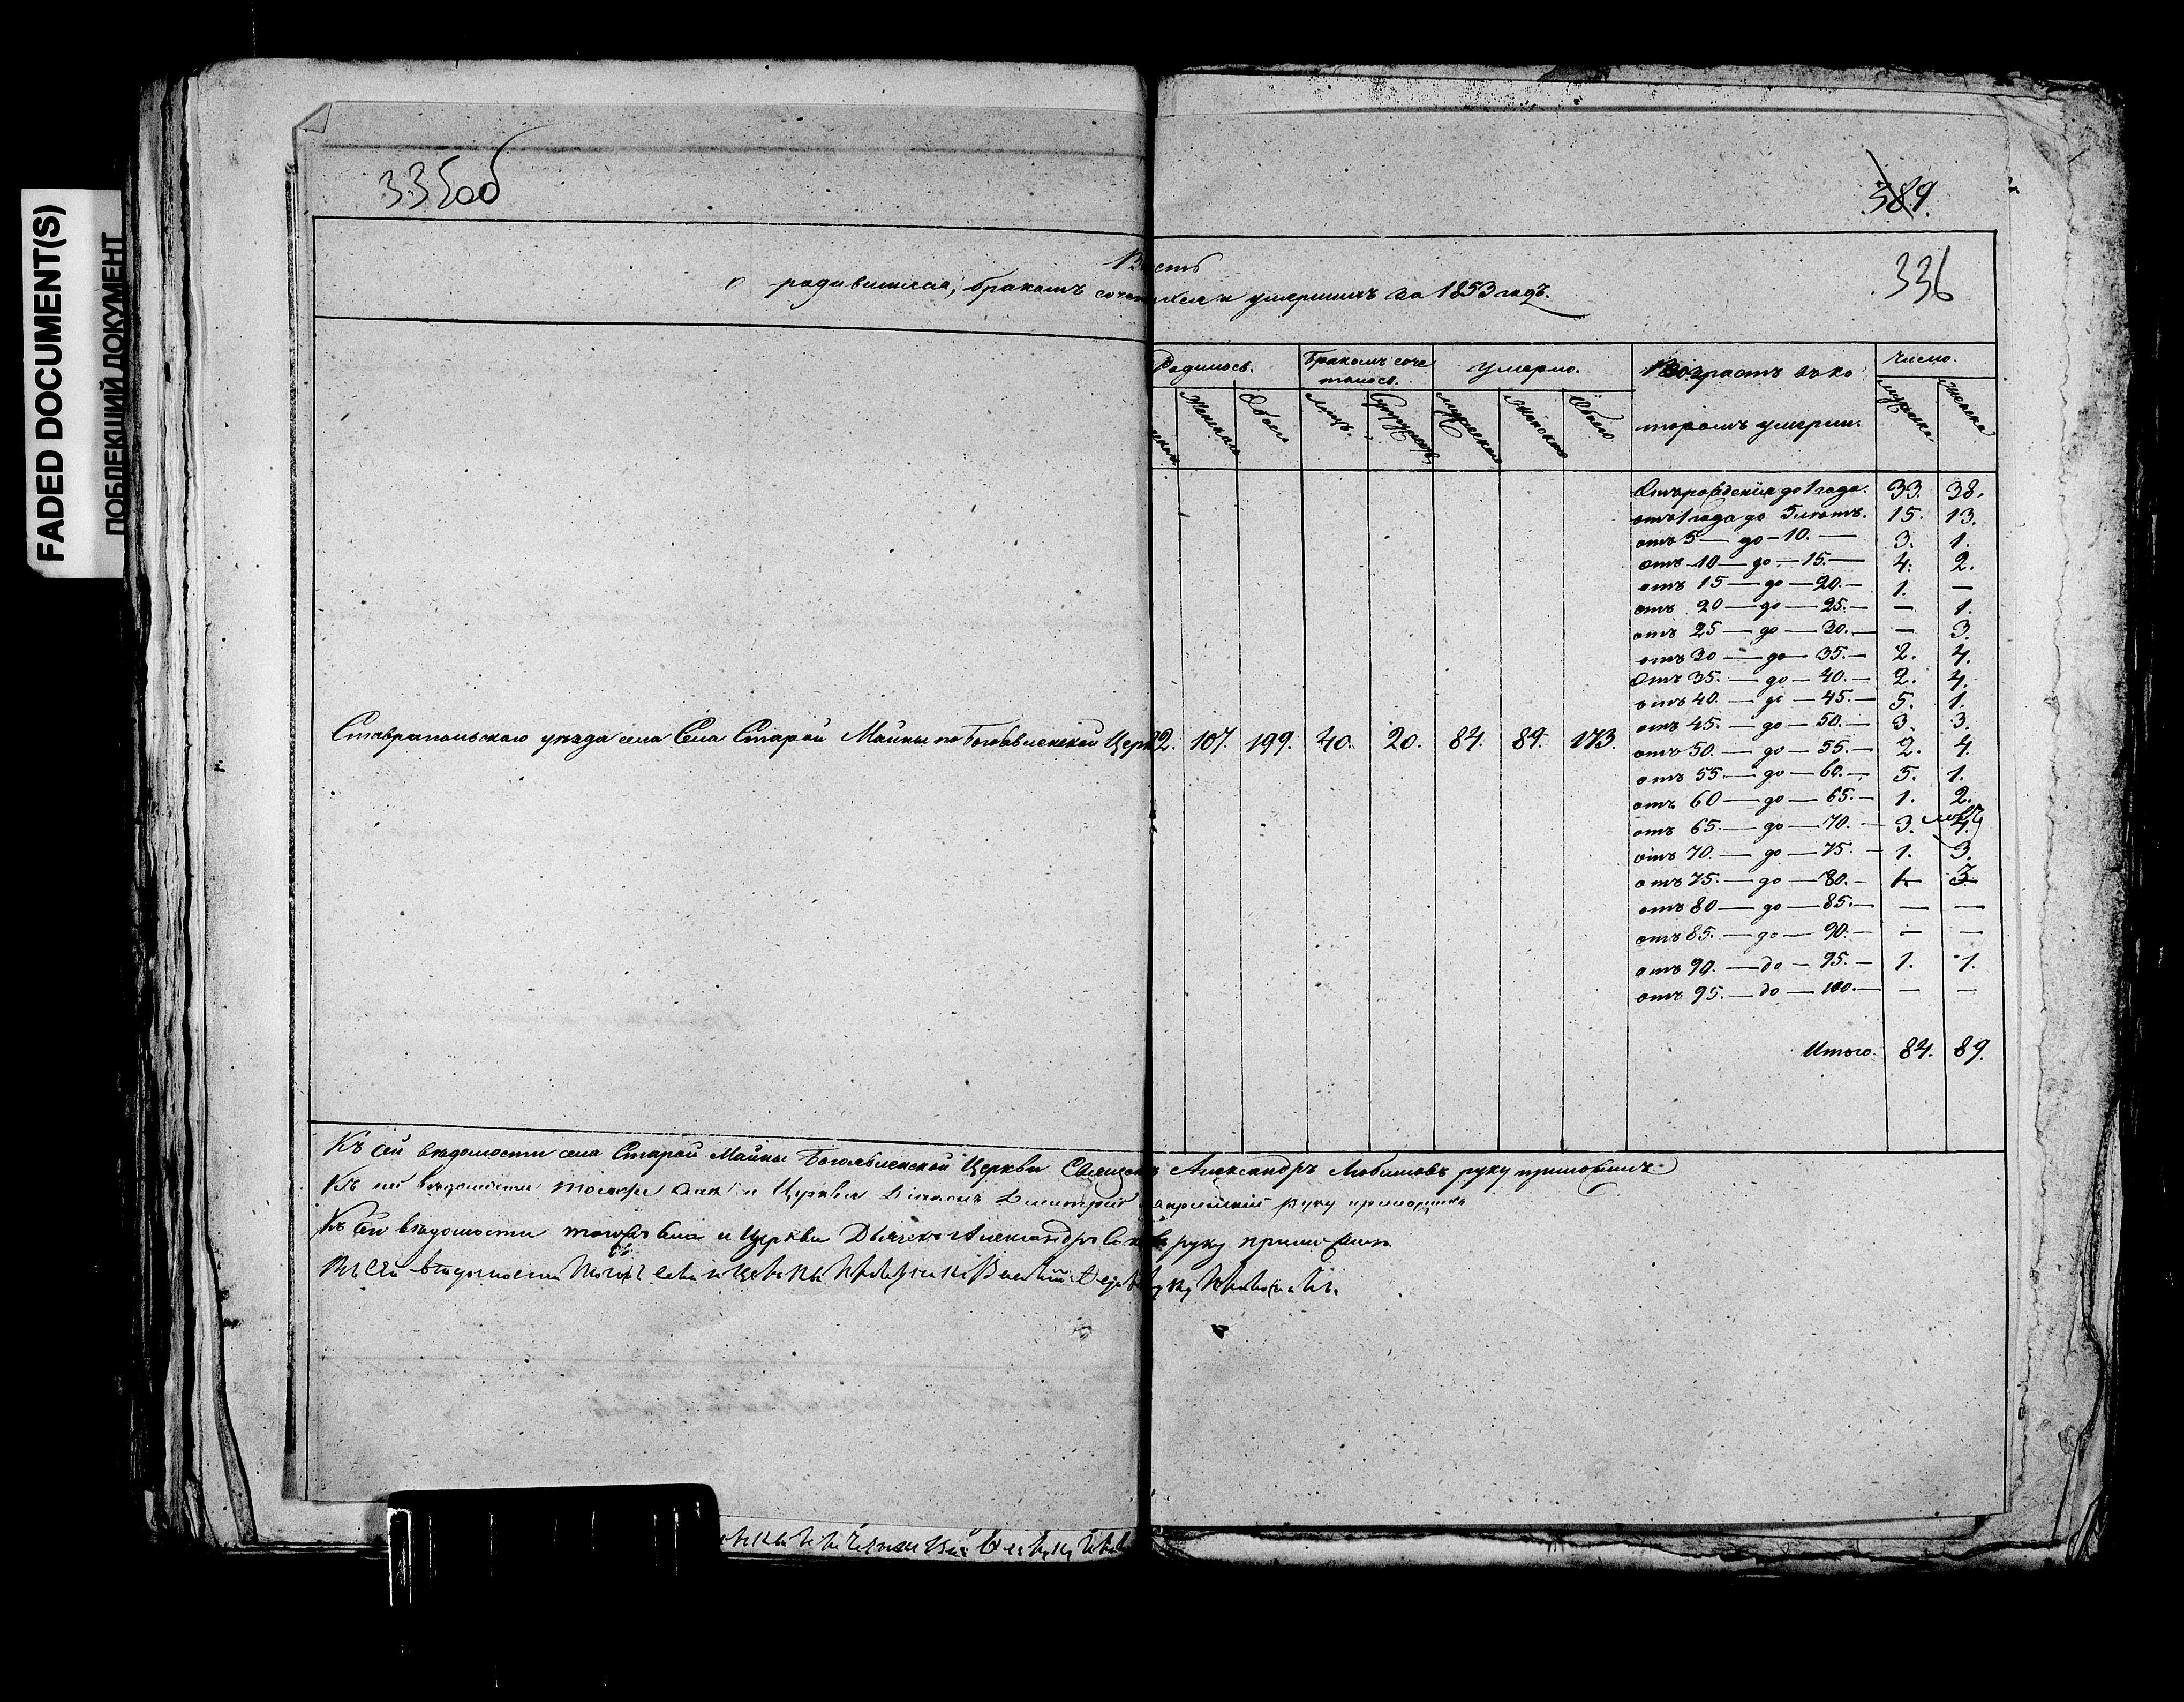 FADED DOCUMENT(S)
ПОБЛЕКШИЙ ДОКУМЕНТ
335об
389.
336
о родившихся, бракомъ сочетавшихся и умершихъ за 1853 годъ.
Родилось. Бракомъ соче талось. Умерло. Возрастъ въ ко торомъ умерли. Число.
Женскаго Обоего Лицъ. Супружествъ Мужескаго Женскаго Обоего Мужеска Женска
Отъ рожденія до 1 года. 33. 38.
отъ 1 года до 5 лѣтъ. 15. 13.
отъ 5 — до — 10. — 3. 1.
отъ 10 — до — 15. — 4. 2.
отъ 15 — до — 20. — 1. —
отъ 20 — до — 25. — — 1.
отъ 25 — до — 30. — — 3.
отъ 30 — до — 35. — 2. 4.
Отъ 35. — до — 40. — 2. 4.
отъ 40. — до — 45. — 5. 1.
отъ 45. — до — 50. — 3. 3.
Ставропольскаго уѣзда села Села Старой Майны по Богоявленской Церк 2. 107. 199. 40. 20. 84. 89. 173.
отъ 50. — до — 55. — 2. 4.
отъ 55. — до — 60. — 5. 1.
отъ 60 — до — 65. — 1. 2.
отъ 65. — до — 70. — 3. 4.
отъ 70. — до — 75. — 1. 3.
отъ 75. — до — 80. — 1. 3.
отъ 80 — до — 85. — — —
отъ 85. — до — 90. — — —
отъ 90. — до — 95. — 1. 1.
отъ 95. — до — 100. — — —
Итого. 84. 89.
Къ сей вѣдомости села Старой Майны Богоявленской Церкви Священ Александръ Любимовъ руку приложилъ
Къ сей вѣдомости тогожъ села и Церкви Діаконъ Димитрій руку приложилъ
Къ сей вѣдомости тогожъ села и Церкви Дьячекъ Александръ руку приложилъ
Къ сей вѣдомости тогожъ села и церкви руку приложилъ.